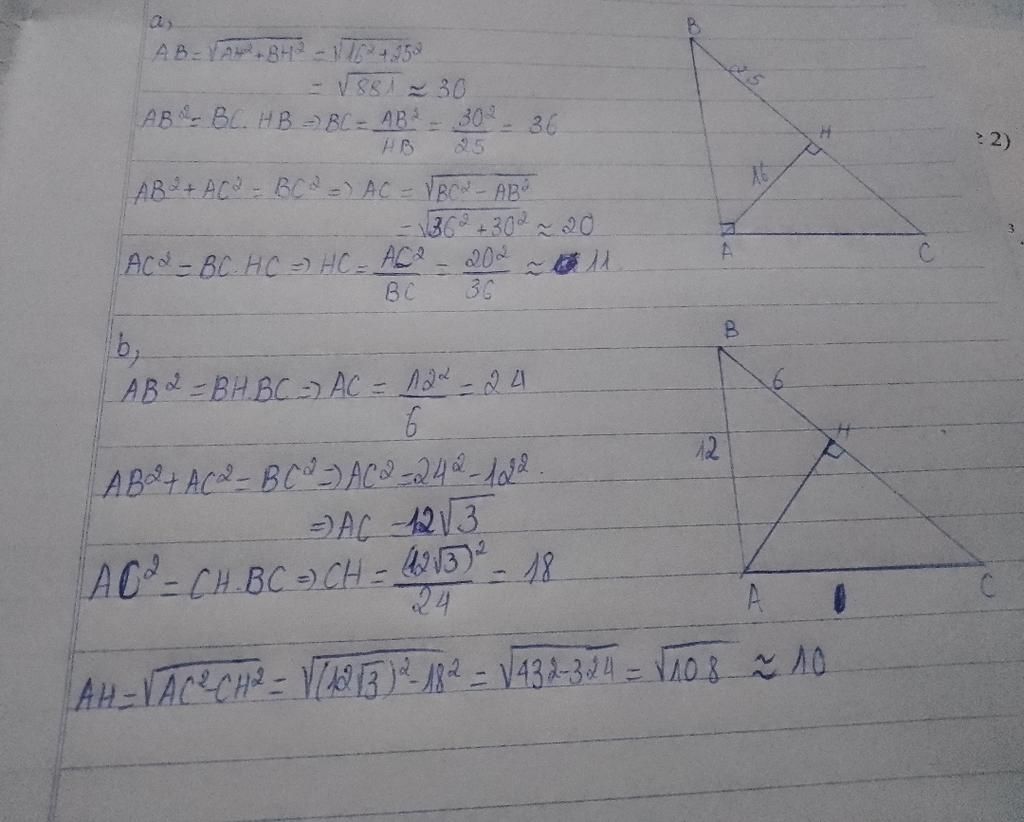 a,
AB = √(AH² + BH²) = √(16² + 25²)
= √881 ≈ 30
AB² = BC . HB => BC = AB²/HB = 30²/25 = 36
AB² + AC² = BC² => AC = √(BC² - AB²)
= √(36² + 30²) ≈ 20
AC² = BC . HC => HC = AC²/BC = 20²/36 ≈ 11
B
25
H
16
A
C
2)
3
b,
AB² = BH.BC => AC = 12²/6 = 24
AB² + AC² = BC² => AC² = 24² - 12².
=> AC = 12√3
AC² = CH.BC => CH = (12√3)²/24 = 18
AH = √(AC² - CH²) = √((12√3)² - 18²) = √(432 - 324) = √108 ≈ 10
B
6
H
12
A
C